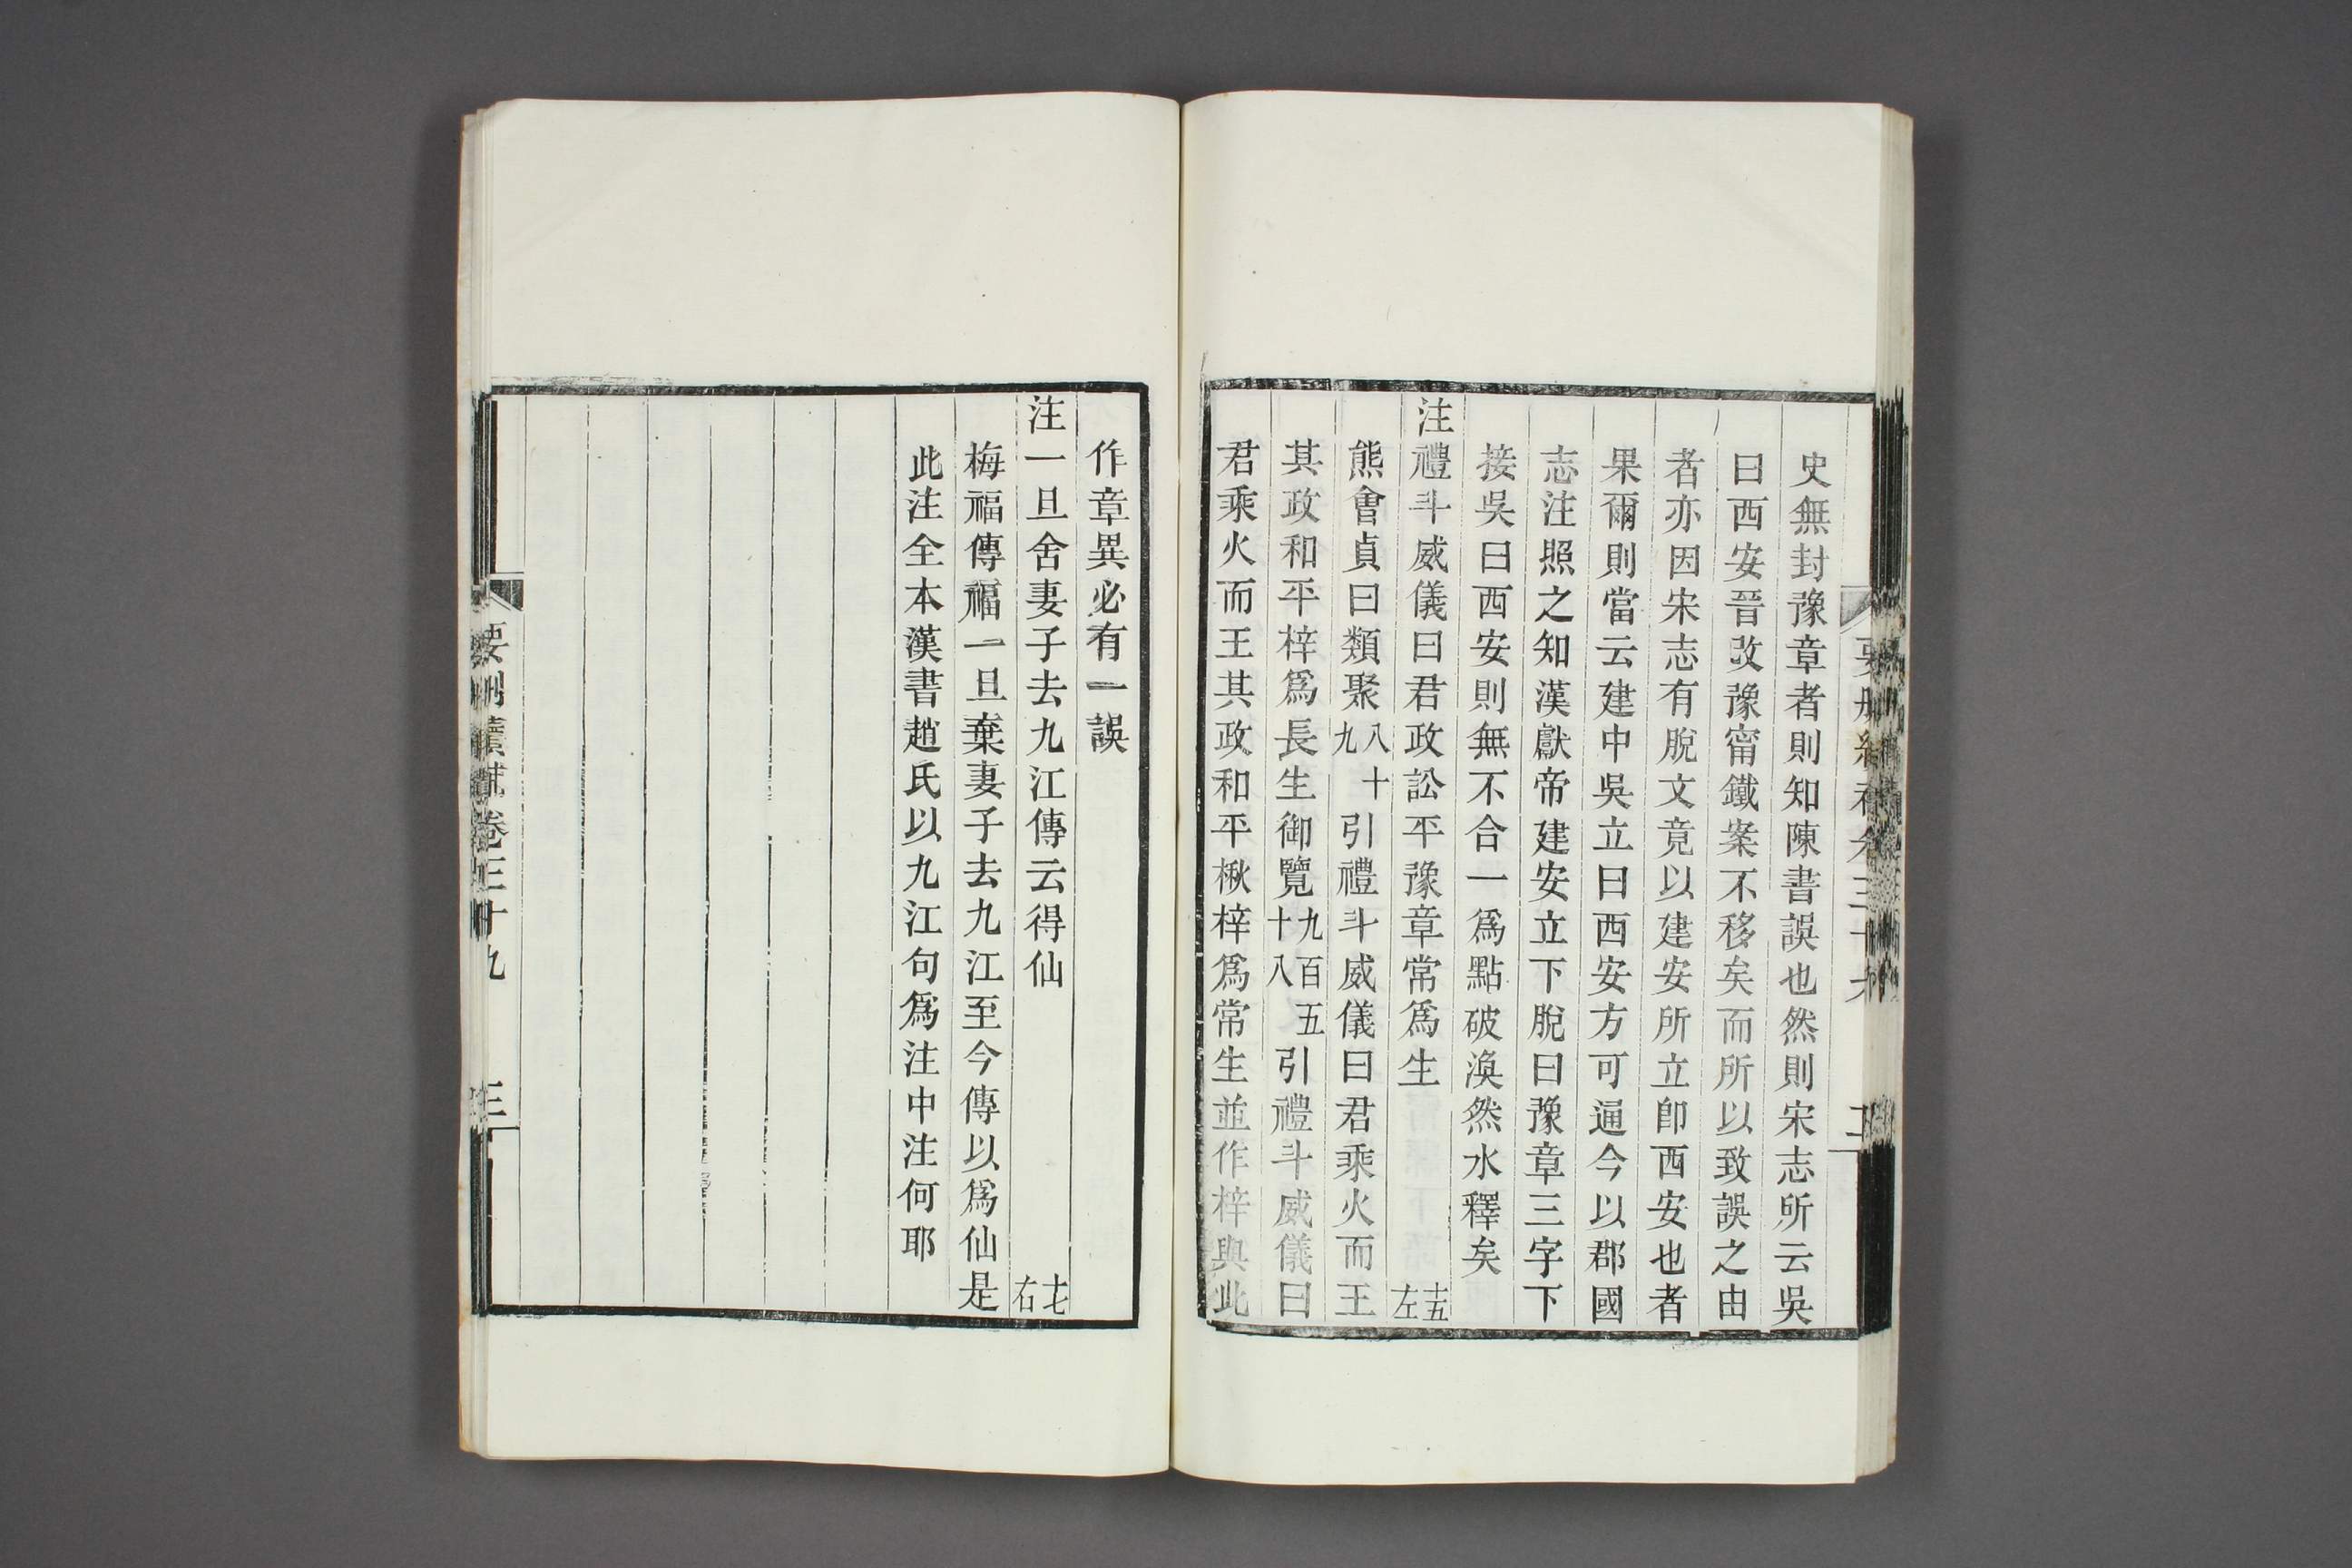 史無封豫章者則知陳書誤也然則宋志所云吳
曰西安晉改豫甯鐵案不移矣而所以致誤之由
者亦因宋志有脫文竟以建安所立卽西安也者
果爾則當云建中吳立曰西安方可通今以郡國
志注照之知漢獻帝建安立下脫曰豫章三字下
接吳曰西安則無不合一爲點破渙然水釋矣
注禮斗威儀曰君政訟平豫章常爲生 十五左
熊會貞曰類聚八十九引禮斗威儀曰君乘火而王
其政和平梓爲長生御覽九百五十八引禮斗威儀曰
君乘火而王其政和平楸梓爲常生並作梓與此
作章異必有一誤
注一旦舍妻子去九江傳云得仙 十七右
梅福傳福一旦棄妻子去九江至今傳以爲仙是
此注全本漢書趙氏以九江句爲注中注何耶
要刪續補卷三十九
三